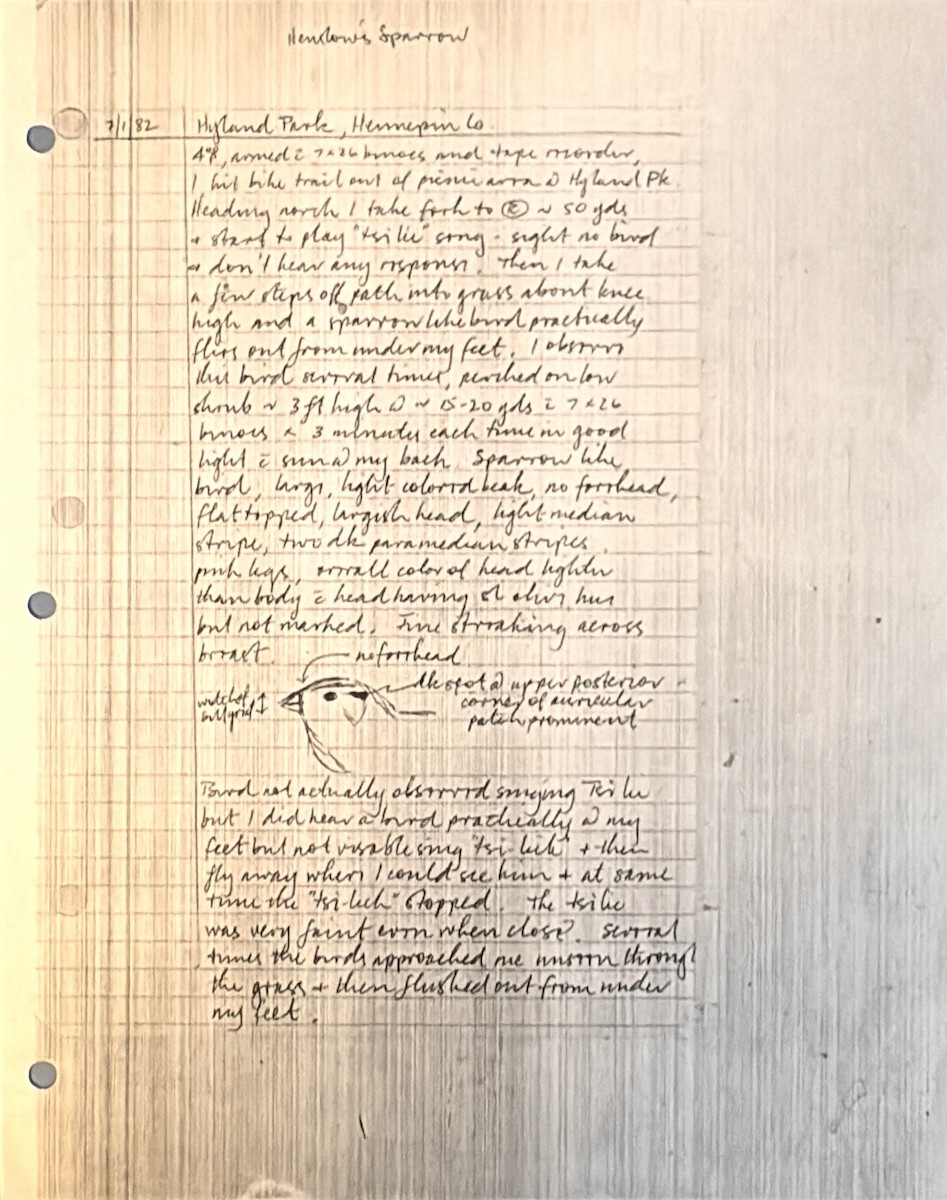 Henslow's Sparrow
7/1/82 Hyland Park, Hennepin Co.
4PM, armed c̄ 7x26 binocs and tape recorder,
I hit bike trail out of picnic area @ Hyland Pk.
Heading north I take fork to Ⓡ ~ 50 yds
+ start to play "tsi lic" song - sight no bird
+ don't hear any response. Then I take
a few steps off path into grass about knee
high and a sparrow like bird practically
flies out from under my feet. I observe
this bird several times, perched on low
shrub ~ 3 ft high @ ~ 15-20 yds c̄ 7x26
binocs x 3 minutes each time in good
light c̄ sun @ my back. Sparrow like
bird, large, light colored beak, no forehead,
flat topped, largish head, light median
stripe, two dk paramedian stripes,
pink legs, overall color of head lighter
than body c̄ head having sl olive hue
but not marked. Fine streaking across
breast.
no forehead
dk spot @ upper posterior
corner of auricular
patch prominent
Bird not actually observed singing Tsi lic
but I did hear a bird practically @ my
feet but not visable sing "tsi-lick" + then
fly away where I could see him + at same
time the "tsi-lick" stopped. The tsilic
was very faint even when close. Several
times the birds approached me unseen through
the grass + then flushed out from under
my feet.